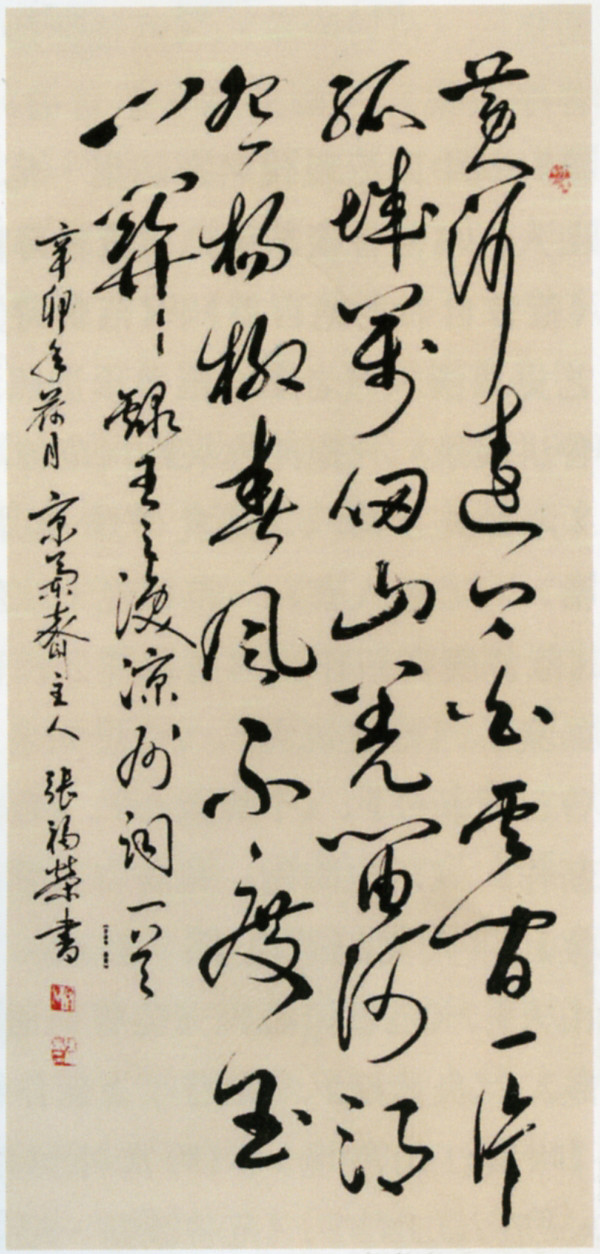 黄河遠上白雲間一片
孤城萬仞山羌笛何須
怨楊柳春風不度玉
門關 錄王之渙涼州詞一首
辛卯年荷月 京蘭齋主人 張福榮書